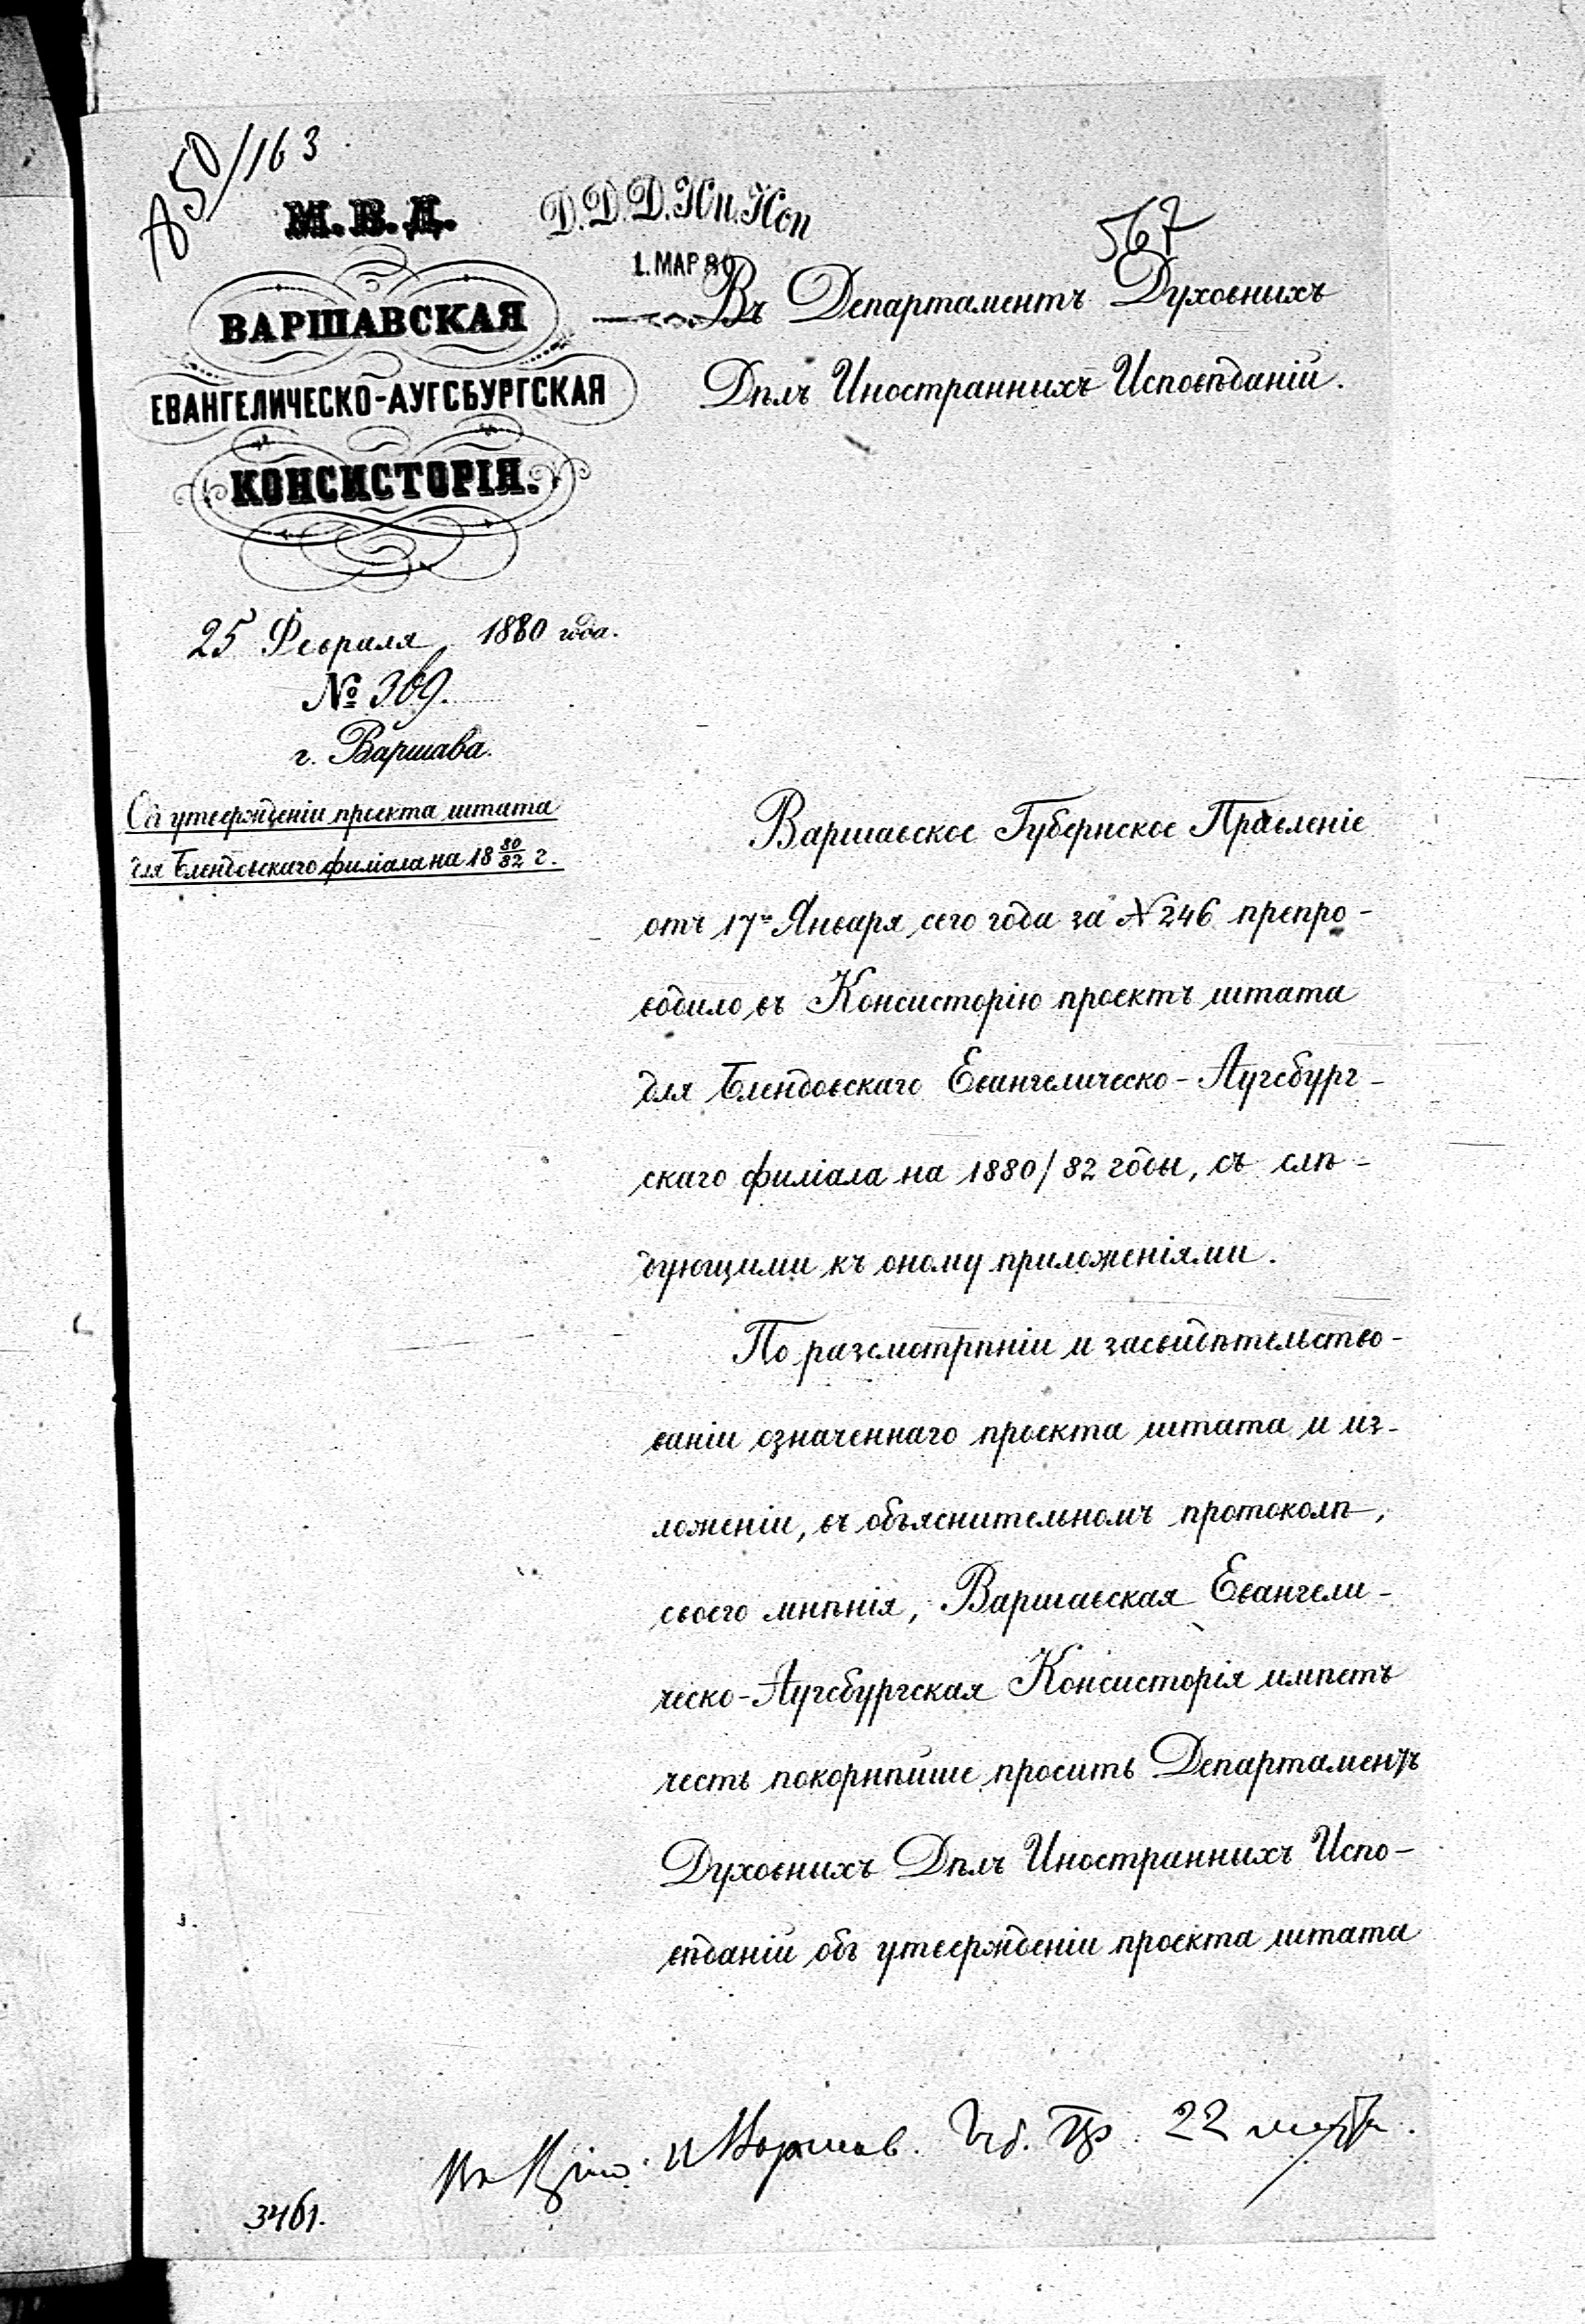 А 50/163
М. В. Д.
Д. Д. Д. Ин. Исп
1. МАР 80
567
ВАРШАВСКАЯ
ЕВАНГЕЛИЧЕСКО-АУГСБУРГСКАЯ
КОНСИСТОРІЯ.
25 Февраля 1880 года.
№ 369.
г. Варшава.
Объ утвержденіи проекта штата
для Блендовскаго филіала на 18 80/82 г.
Въ Департаментъ Духовнихъ
Дѣлъ Иностраннихъ Исповѣданій.
Варшавское Губернское Правленіе
отъ 17го Января сего года за № 246 препро-
водило въ Консисторію проектъ штата
для Блендовскаго Евангелическо-Аугсбург-
скаго филіала на 1880/82 годы, съ слѣ-
дующими къ оному приложеніями.
По разсмотрѣніи и засвидѣтельство-
ваніи означеннаго проекта штата и из-
ложеніи, въ объяснительномъ протоколѣ,
своего мнѣнія, Варшавская Евангели-
ческо-Аугсбургская Консисторія имѣетъ
честь покорнѣйше просить Департаментъ
Духовнихъ Дѣлъ Иностраннихъ Испо-
вѣданій объ утвержденіи проекта штата
Варшав. Губ. Пр. 22 марта.
3461.